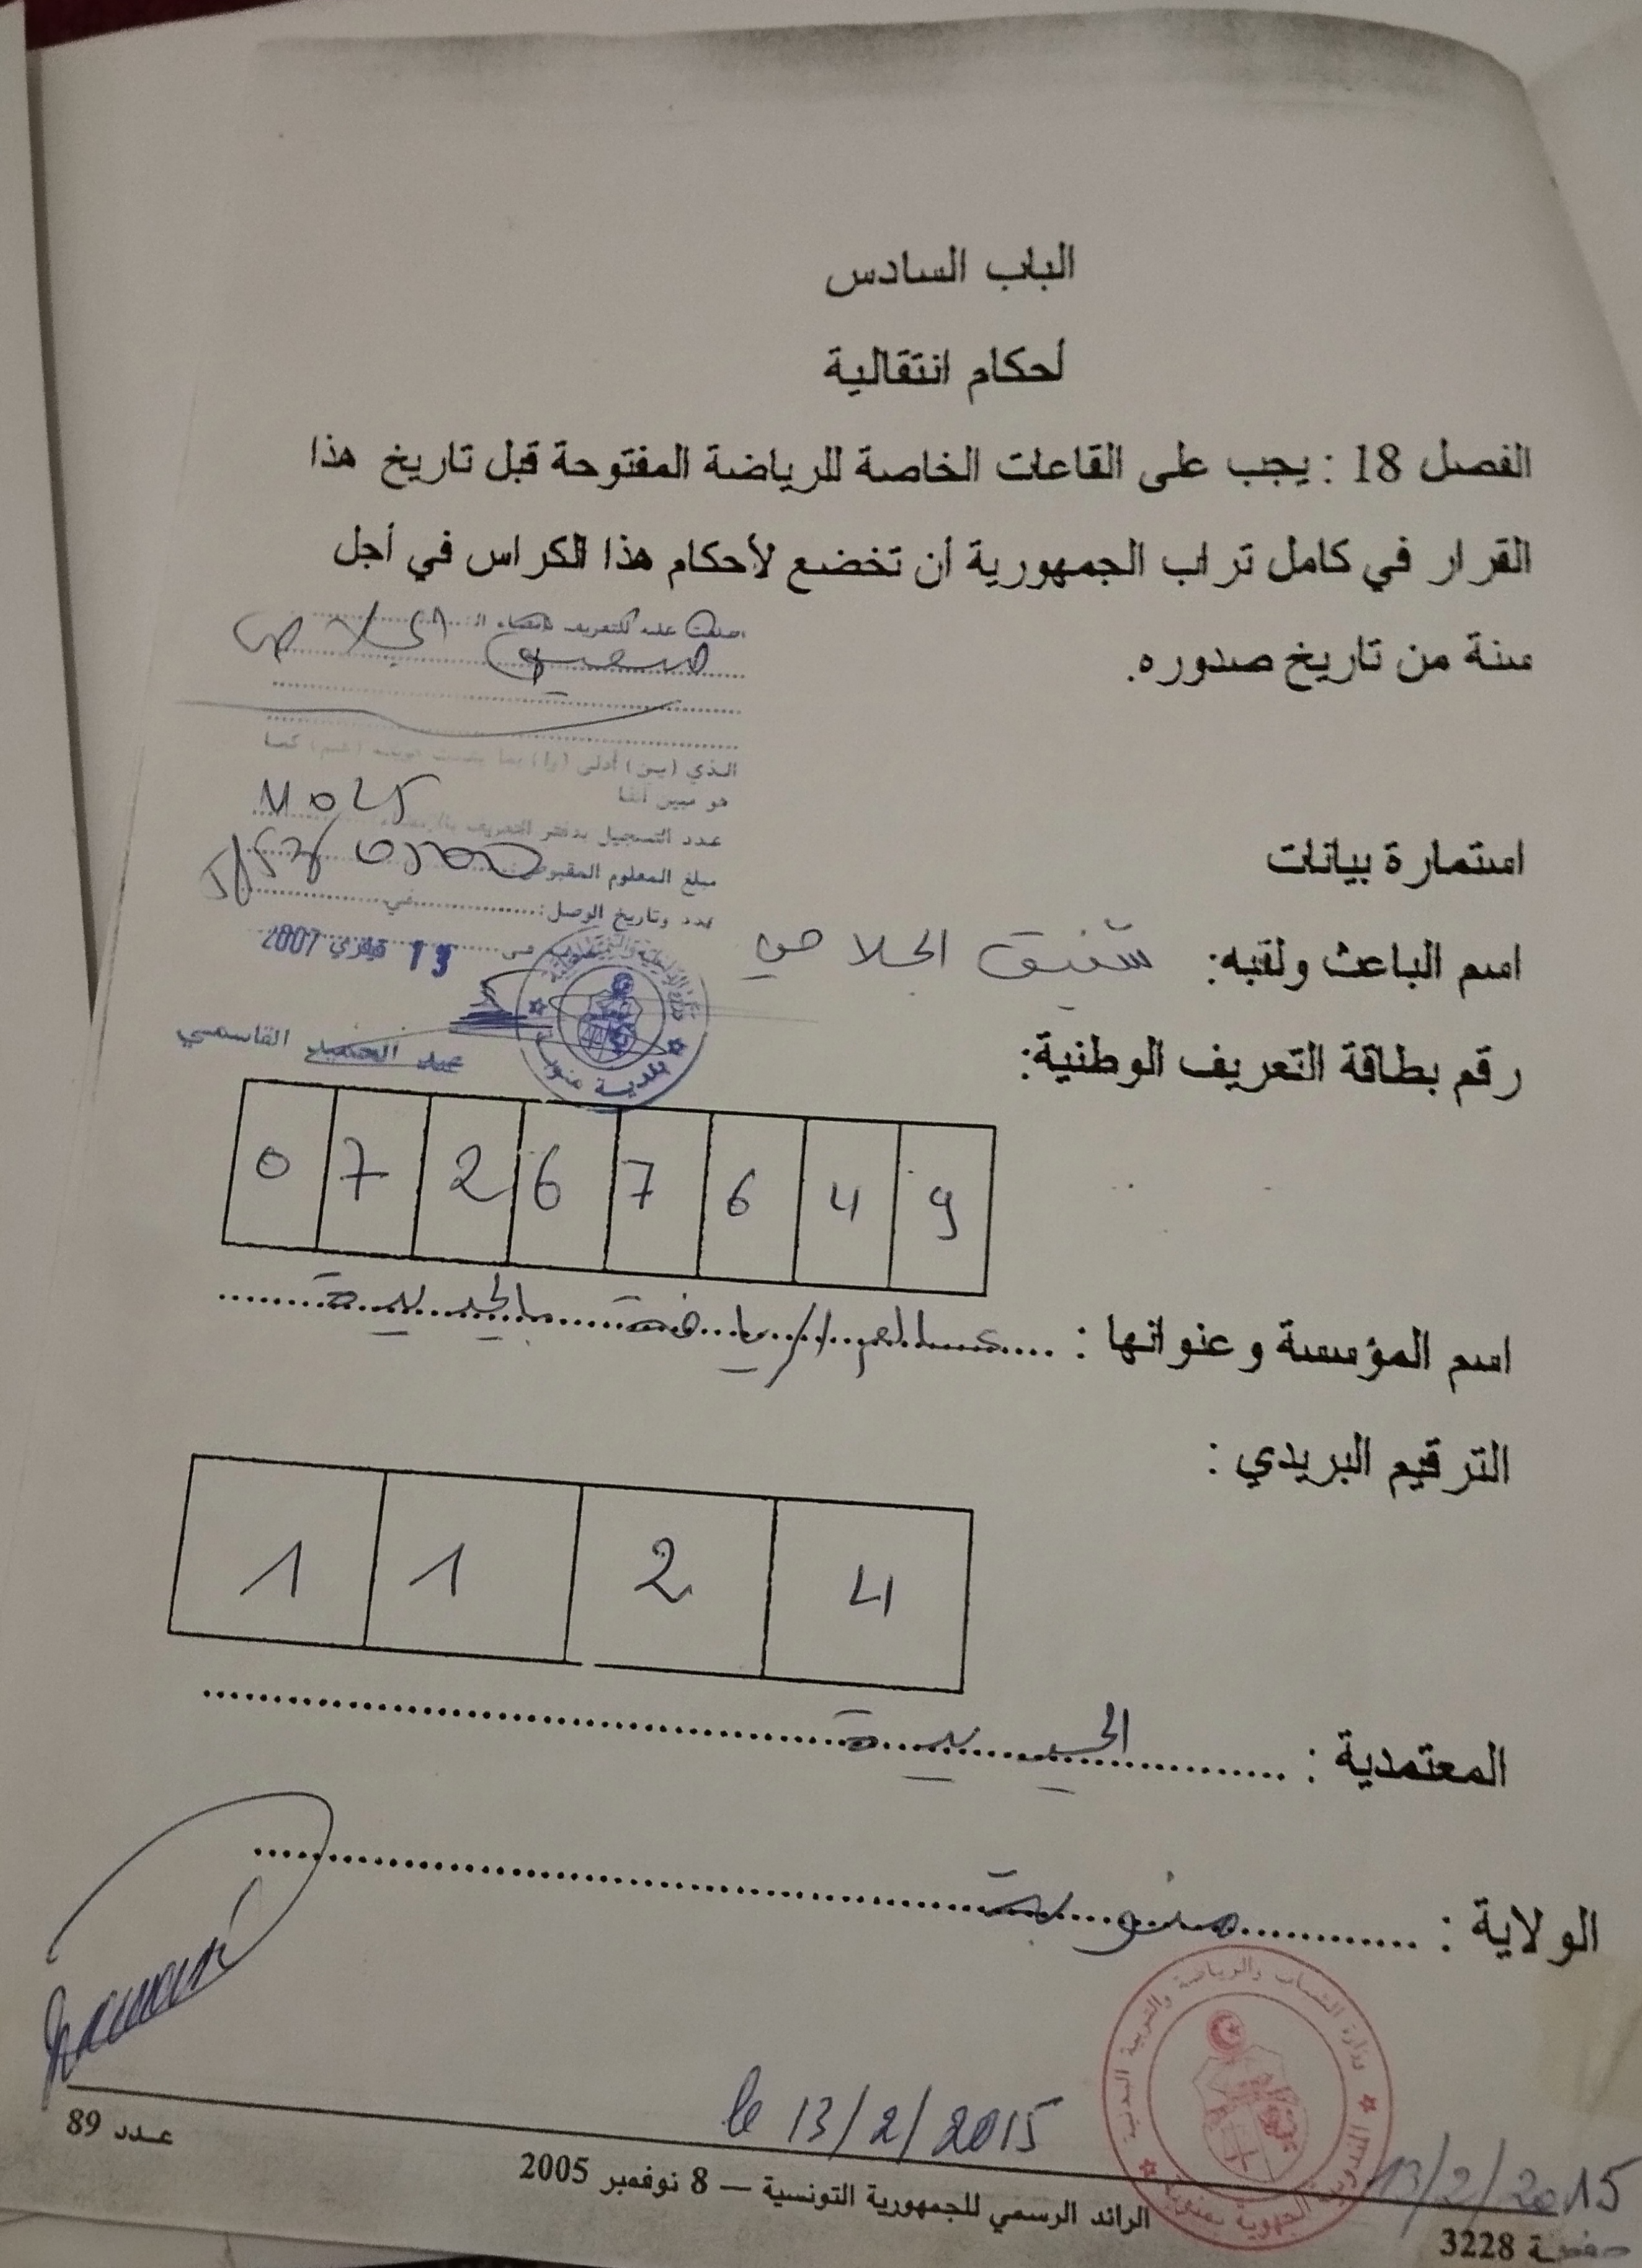 الباب السادس
أحكام انتقالية
الفصل 18 : يجب على القاعات الخاصة للرياضة المفتوحة قبل تاريخ هذا
القرار في كامل تراب الجمهورية أن تخضع لأحكام هذا الكراس في أجل
سنة من تاريخ صدوره.
الذي (ين) أدلى (وا)
هو مبين آنفا
عدد التسجيل بدفتر التعريف
مبلغ المعلوم المقبوض
عدد وتاريخ الوصل: في
13 فيفري 2007
القاسمي
بلدية منوبة
استمارة بيانات
اسم الباعث ولقبه: شفيق الجلاصي
رقم بطاقة التعريف الوطنية:
0 7 2 6 7 6 4 9
اسم المؤسسة وعنوانها : عالم الرياضة بالجديدة
الترقيم البريدي :
1 1 2 4
المعتمدية : الجديدة
الولاية : منوبة
وزارة الشباب والرياضة والتربية البدنية
le 13/2/2015
13/2/2015
عدد 89
الرائد الرسمي للجمهورية التونسية — 8 نوفمبر 2005
صفحة 3228